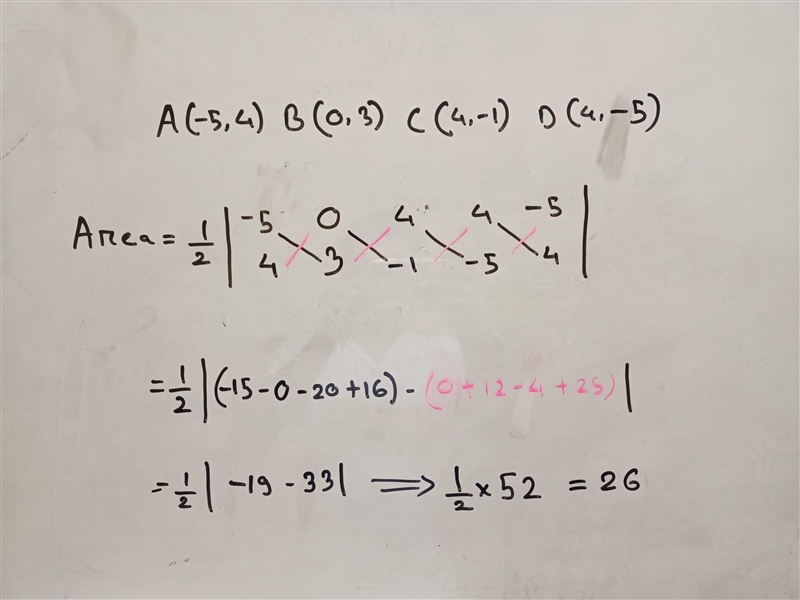 A(-5,4) B(0,3) C(4,-1) D(4,-5)
Area = 1/2 | -5 0 4 4 -5 |
4 3 -1 -5 4
= 1/2 |(-15-0-20+16) - (0+12-4+25)|
= 1/2 | -19 - 33| ⟹ 1/2 × 52 = 26